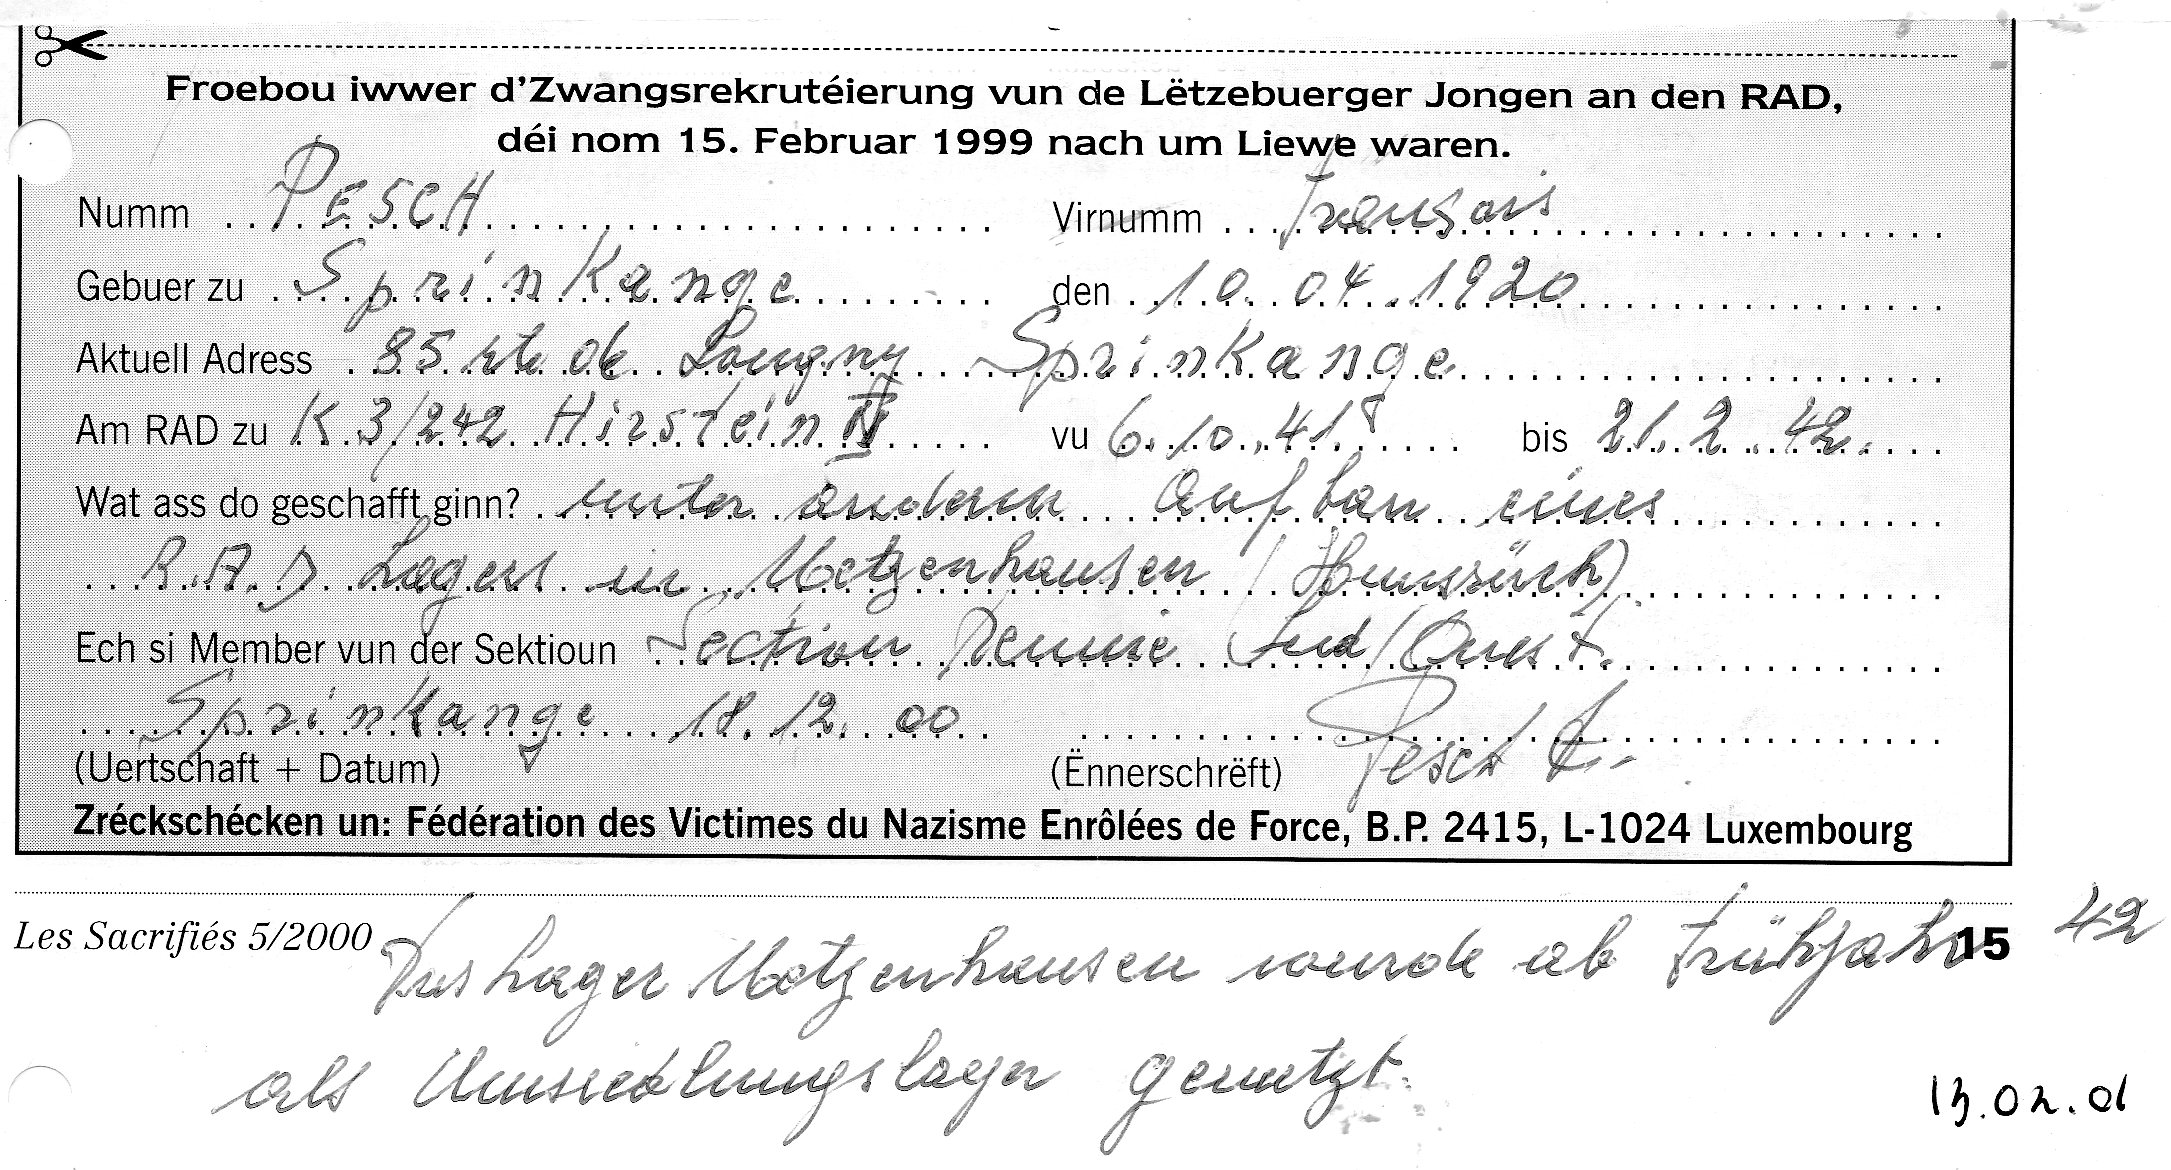 Froebou iwwer d'Zwangsrekrutéierung vun de Lëtzebuerger Jongen an den RAD,
déi nom 15. Februar 1999 nach um Liewe waren.
Numm PESCH Virnumm François
Gebuer zu Sprinkange den 10.04.1920
Aktuell Adress 85 rte de Longwy Sprinkange
Am RAD zu K 3/242 Hirstein vu 6.10.41 bis 21.2.42.
Wat ass do geschafft ginn? unter anderm Aufbau eines
R.A.D Lagers in Metzenhausen (Hunsrück)
Ech si Member vun der Sektioun Section Remise Sud/Ouest.
Sprinkange 18.12.00 Pesch F.
(Uertschaft + Datum) (Ënnerschrëft)
Zréckschécken un: Fédération des Victimes du Nazisme Enrôlées de Force, B.P. 2415, L-1024 Luxembourg
Les Sacrifiés 5/2000 15
Das Lager Metzenhausen wurde ab Frühjahr 42
als Umsiedlungslager genutzt.
13.02.01